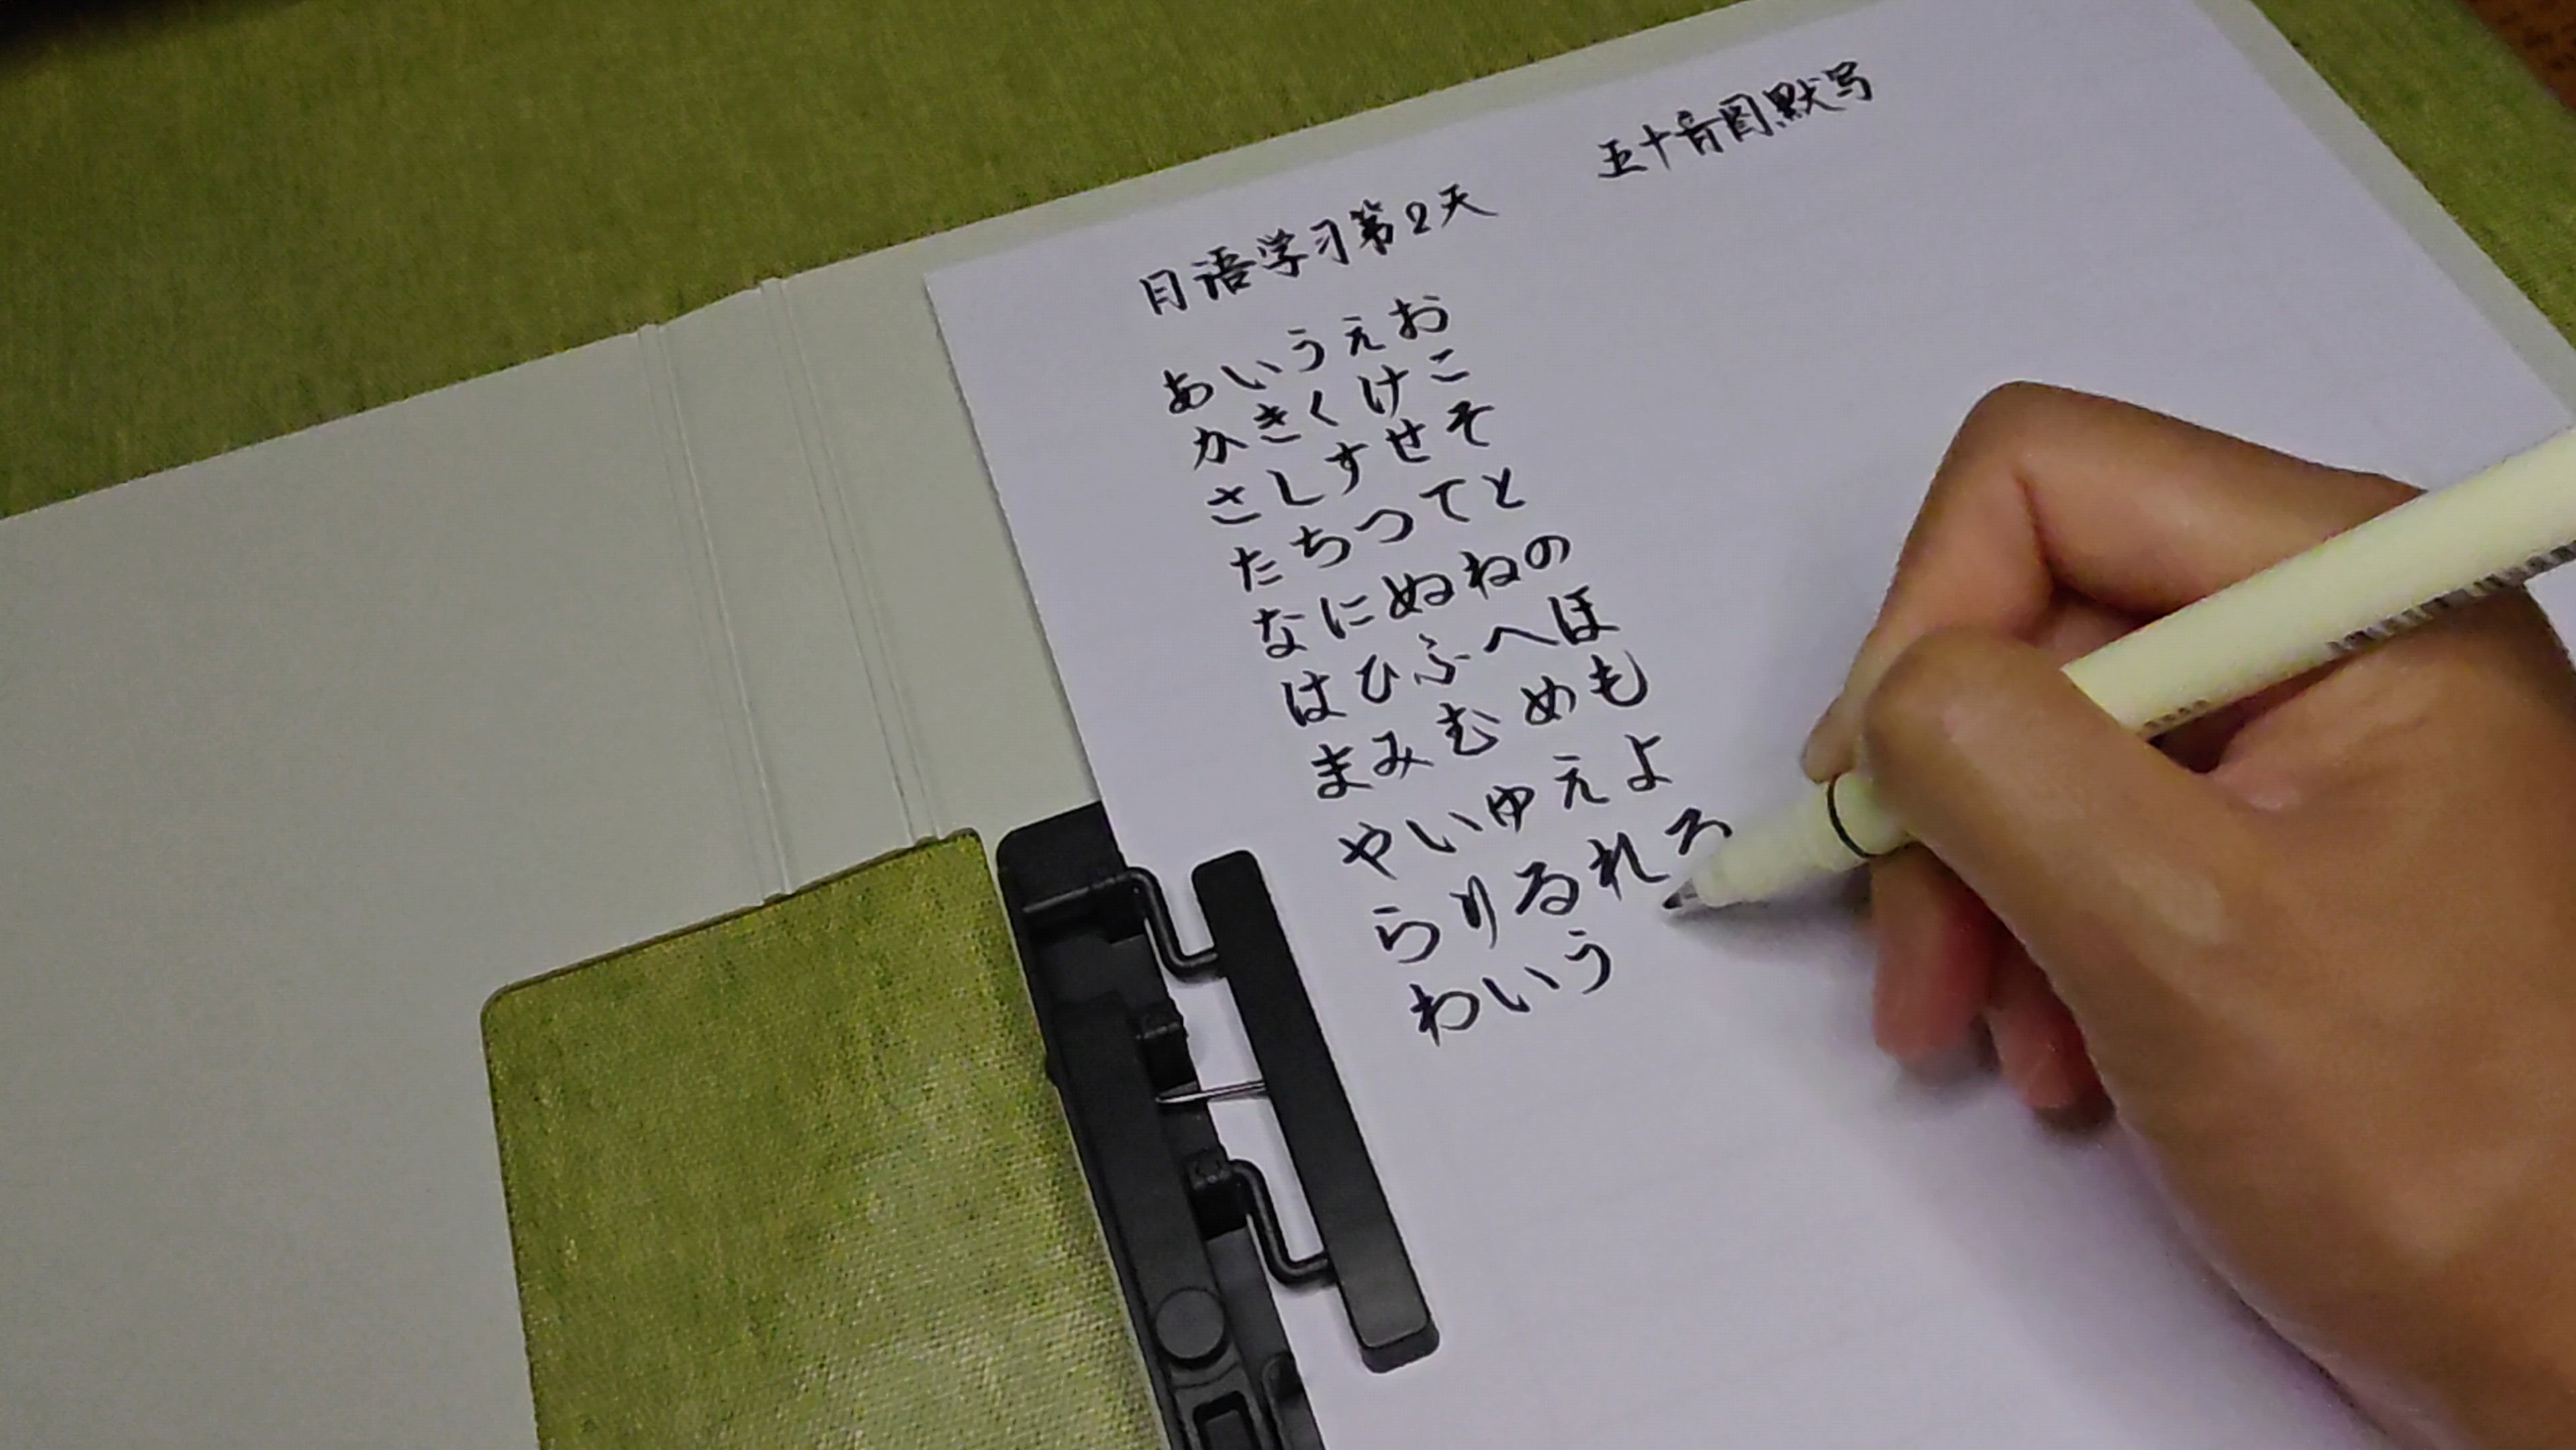 五十音图默写
日语学习第2天
あいうえお
かきくけこ
さしすせそ
たちつてと
なにぬねの
はひふへほ
まみむめも
やいゆえよ
らりるれろ
わいう